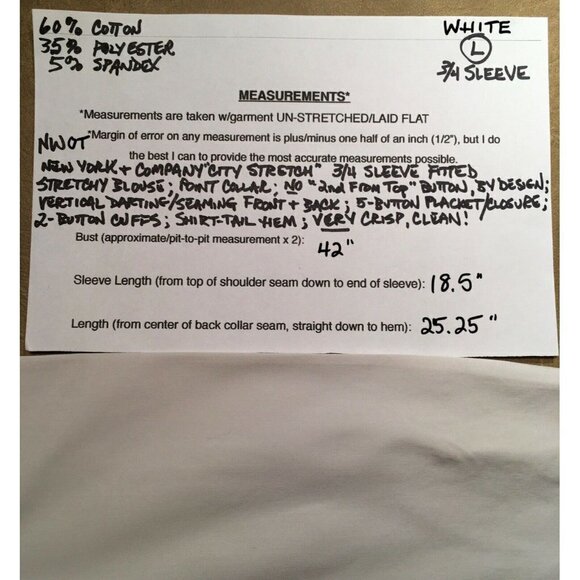 60% COTTON
35% POLYESTER
5% SPANDEX
WHITE
L
3/4 SLEEVE
MEASUREMENTS*
*Measurements are taken w/garment UN-STRETCHED/LAID FLAT
NWOT
*Margin of error on any measurement is plus/minus one half of an inch (1/2"), but I do
the best I can to provide the most accurate measurements possible.
NEW YORK + COMPANY "CITY STRETCH" 3/4 SLEEVE FITTED
STRETCHY BLOUSE; POINT COLLAR; NO "2nd From Top" BUTTON, BY DESIGN;
VERTICAL DARTING/SEAMING FRONT + BACK; 5-BUTTON PLACKET/CLOSURE;
2-BUTTON CUFFS; SHIRT-TAIL HEM; VERY CRISP, CLEAN!
Bust (approximate/pit-to-pit measurement x 2): 42"
Sleeve Length (from top of shoulder seam down to end of sleeve): 18.5"
Length (from center of back collar seam, straight down to hem): 25.25"